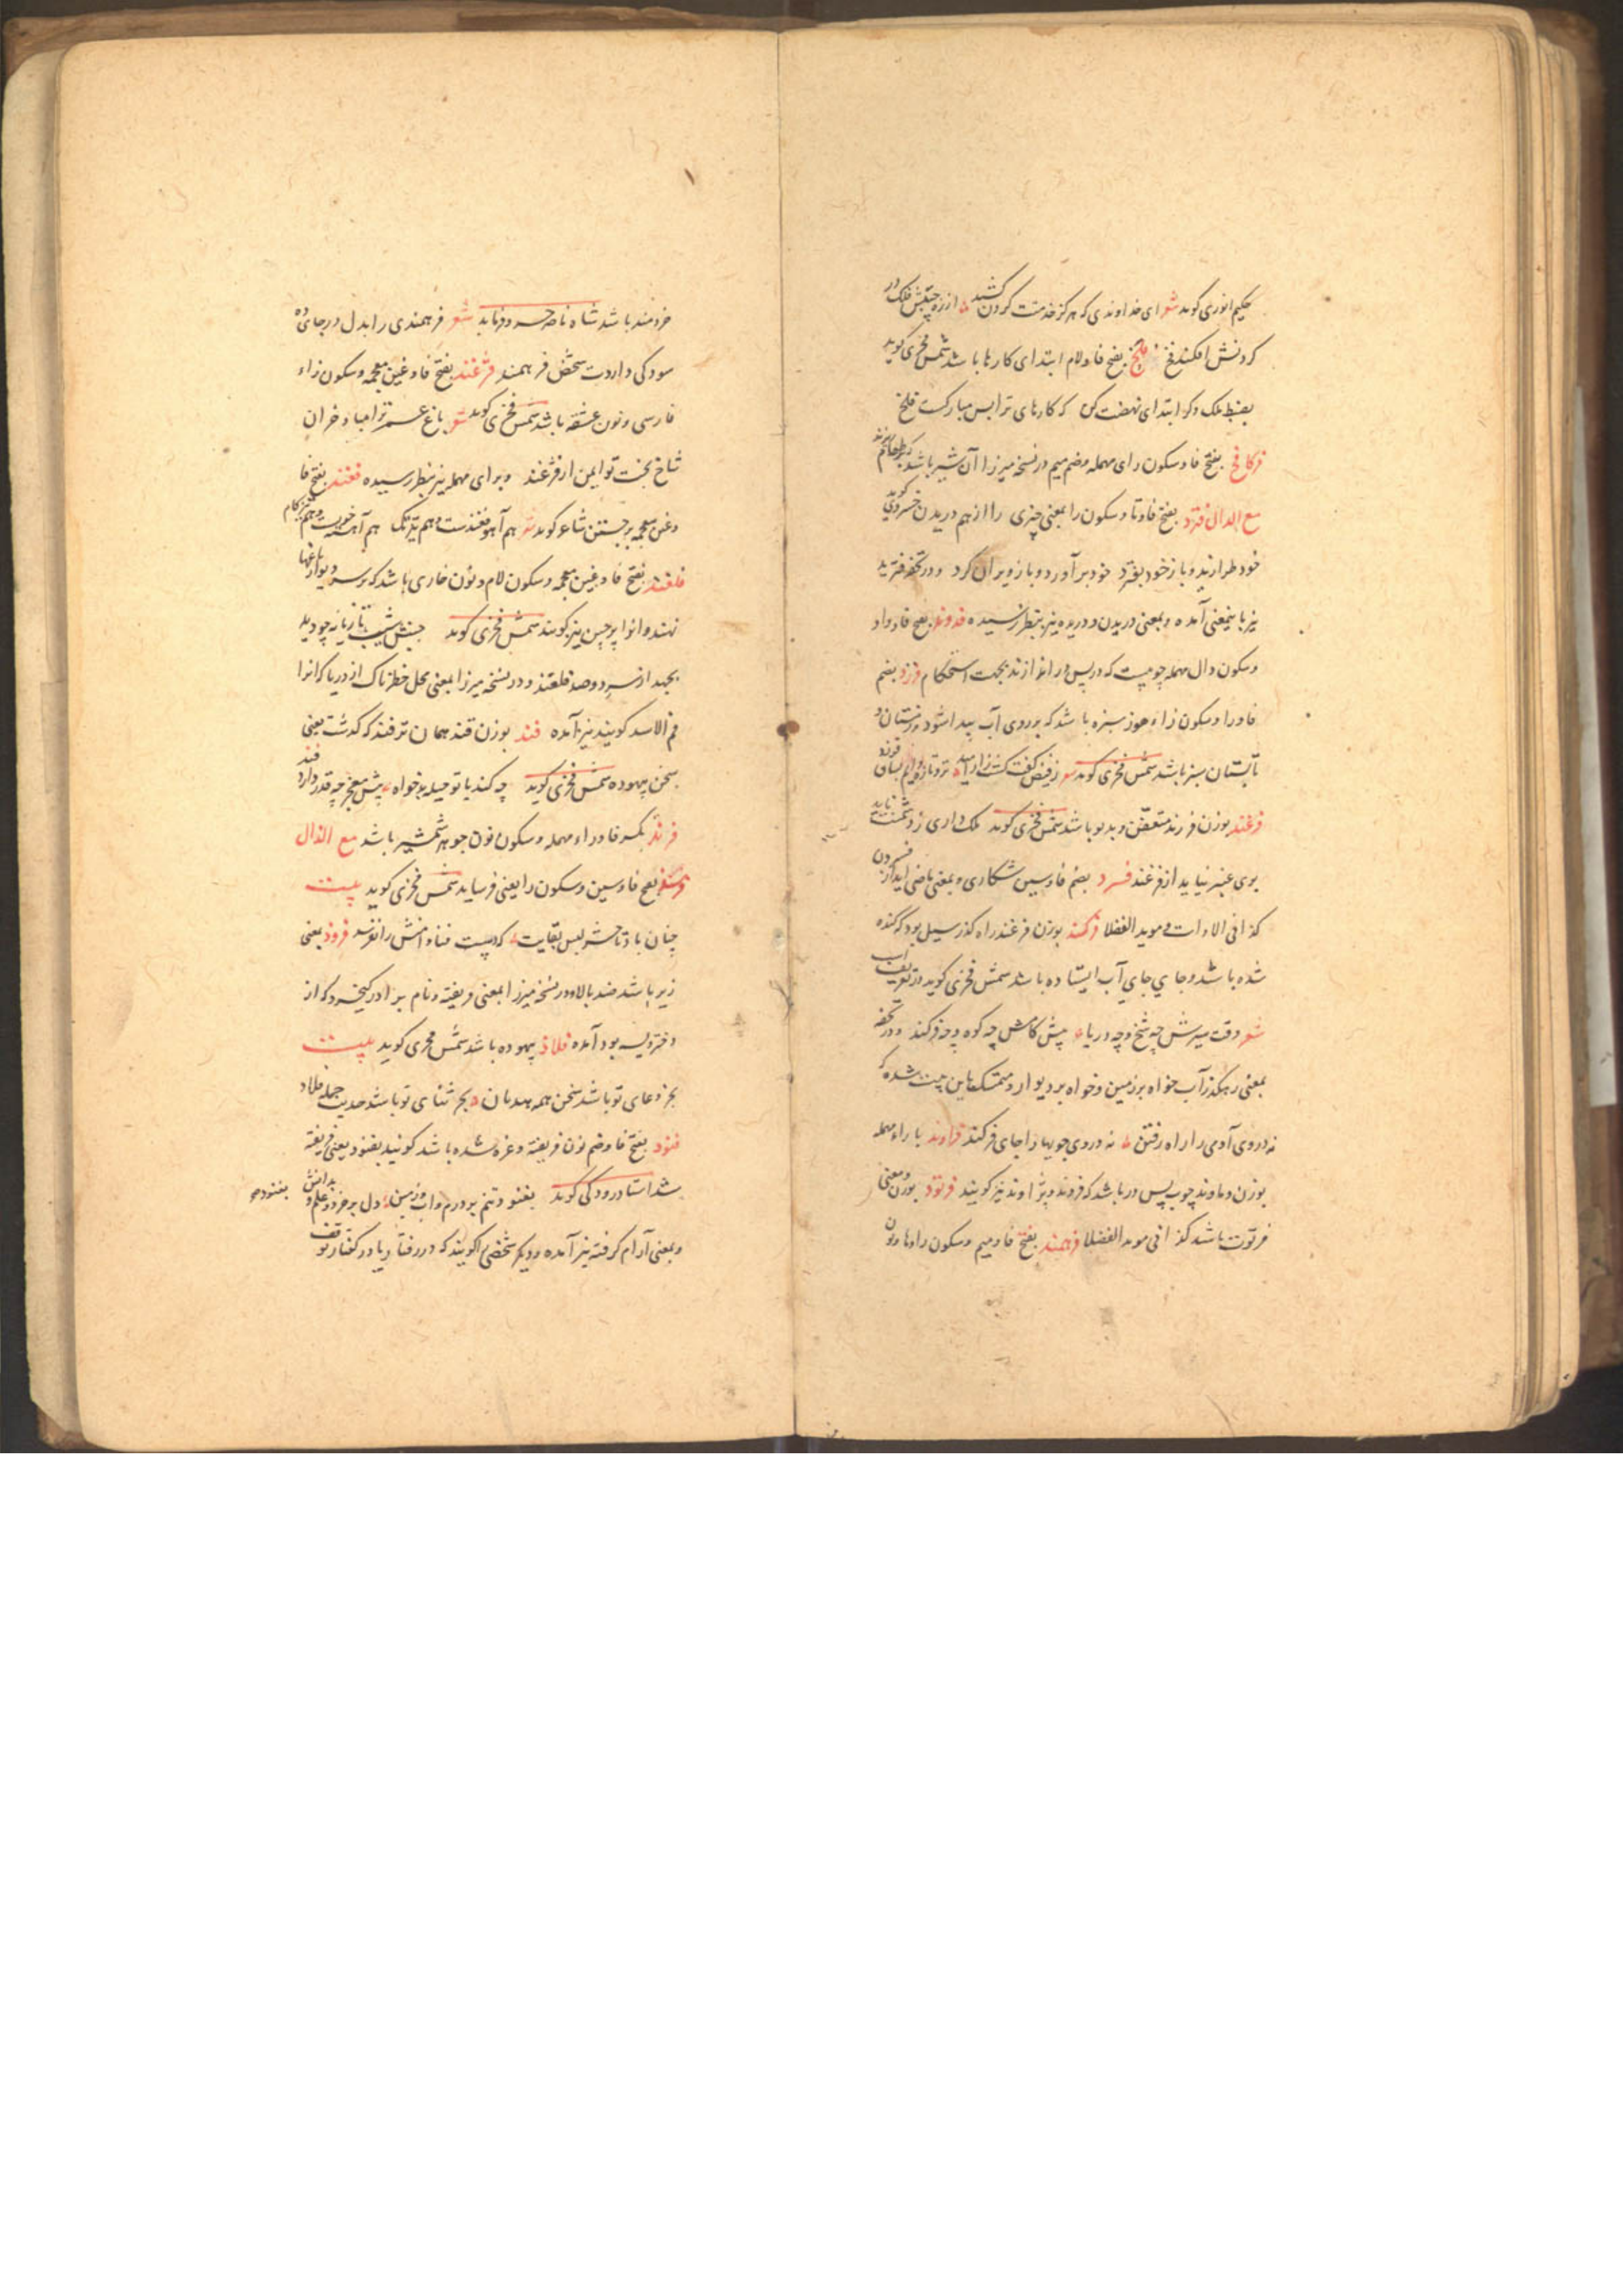 حکیم انوری کوید شعر ای خداوندی که هرکز خدمتت کردن کشید از زه جیبش فلک در
کردنش افکند فخ فلخ بفتح فا و لام ابتدای کارها باشد شمس فخری کوید
بضبط ملک دکر ابتدای نهضت کن که کارهای ترا بس مبارکست فلخ
بفتح فا و سکون رای مهمله و ضم میم در نسخه میرزا آن شیر باشد
مع الدال فترد بفتح فا و تا و سکون را بمعنی چیزی را از هم دریدن خسروی کوید
خود طرازنده و باز خود بفترد خود برآورد و باز ویران کرد و در تحفه فترید
نیز باینمعنی آمده و بمعنی دریدن و دریده نیز بنظر رسیده فدوند بفتح فا و واو
و سکون دال مهمله چوبیست که در پس در اندازند بجهت استحکام فرزد بفتح
فا و را و سکون زاء هوز سبزه باشد که بر روی آب پیدا شود و زمستان و
تابستان سبز باشد شمس فخری کوید شعر ز فیض کفت کشت زار امید تر و تازه دایم بسان فرزد
فرغند بوزن فرزند متعفن و بدبو باشد شمس فخری کوید ملک داری ز دشمنت ناید
بوی عنبر نیاید از فرغند فسرد بضم فا و سین شکاری و بمعنی ماضی ایدا از فسردن
کذا فی الادات و موید الفضلا فرکند بوزن فرغند راه کذر سیل بود که کنده
شده باشد و جای جای آب ایستاده باشد شمس فخری کوید در تعریف اسب
شعر وقت سیرش چه شخ و چه دریا پیش کامش چه کوه و چه فرکند و در تحفه
بمعنی رهکذر آب خواه بر زمین و خواه بر دیوار و متمسک باین بیت شده که
نه در وی آدمی را راه رفتن نه در وی جویها را جای فرکند فراوند با راء مهمله
بوزن دماوند چوب پس در باشد که فروند و پژاوند نیز کویند فرتود بوزن و معنی
فرتوت باشد کذا فی موید الفضلا فرهمند بفتح فا و میم و سکون را و ها و نون
خردمند باشد شاه ناصر خسرو فرماید شعر فرهمندی را بدل در جای ده
سودکی داردت شخص فرهمند فژغند بفتح فا و غین معجمه و سکون زاء
فارسی و نون عشقه باشد شمس فخری کوید شعر باغ عمر ترا مباد خزان
شاخ بخت تو ایمن از فژغند و برای مهمله نیز بنظر رسیده فغند بفتح فا
و غین معجمه برجستن شاعر کوید شعر هم آهو فغندست و هم تیز تک هم آهسته خویست و هم تیزکام
فلغند بفتح فا و غین معجمه و سکون لام و نون خاری باشد که بر سر دیوار باغها
نهند و انرا پرچین نیز کویند شمس فخری کوید جنبش شیب تازیانه چو دید
بجهد از سر دو صد فلغند و در نسخه میرزا بمعنی محل خطرناک از دریا که انرا
فم الاسد کویند نیز آمده فند بوزن قند همان ترفند که کذشت یعنی
سخن بیهوده شمس فخری کوید چه کند با تو حیله بدخواه پیش معجز چه قدر دارد فند
فرند بکسر فا و راء مهمله و سکون نون جوهر شمشیر باشد مع الذال
بفتح فا و سین و سکون را یعنی فرساید شمس فخری کوید بیت
چنان باد تا حشر لبس بقایت که دست فنا دامنش را نفرسد فروذ بمعنی
زیر باشد ضد بالا و در نسخه میرزا بمعنی فریفته و نام برادر کیخسرو که از
دختر پیسه بود آمده فلاذ بیهوده باشد شمس فخری کوید بیت
بجز دعای تو باشد سخن همه هذیان بجز ثنای تو باشد حدیث جمله فلاد
فنود بفتح فا و ضم نون فریفته و غره شده باشد کویند بفنود یعنی فریفته
شد استاد رودکی کوید بفنود تنم بر درم و اب و زمین دل بر خرد و علم و بدانش بفنود
و بمعنی آرام کرفته نیز آمده و دیکر شخصی را کویند که در رفتار یا در کفتار توقف